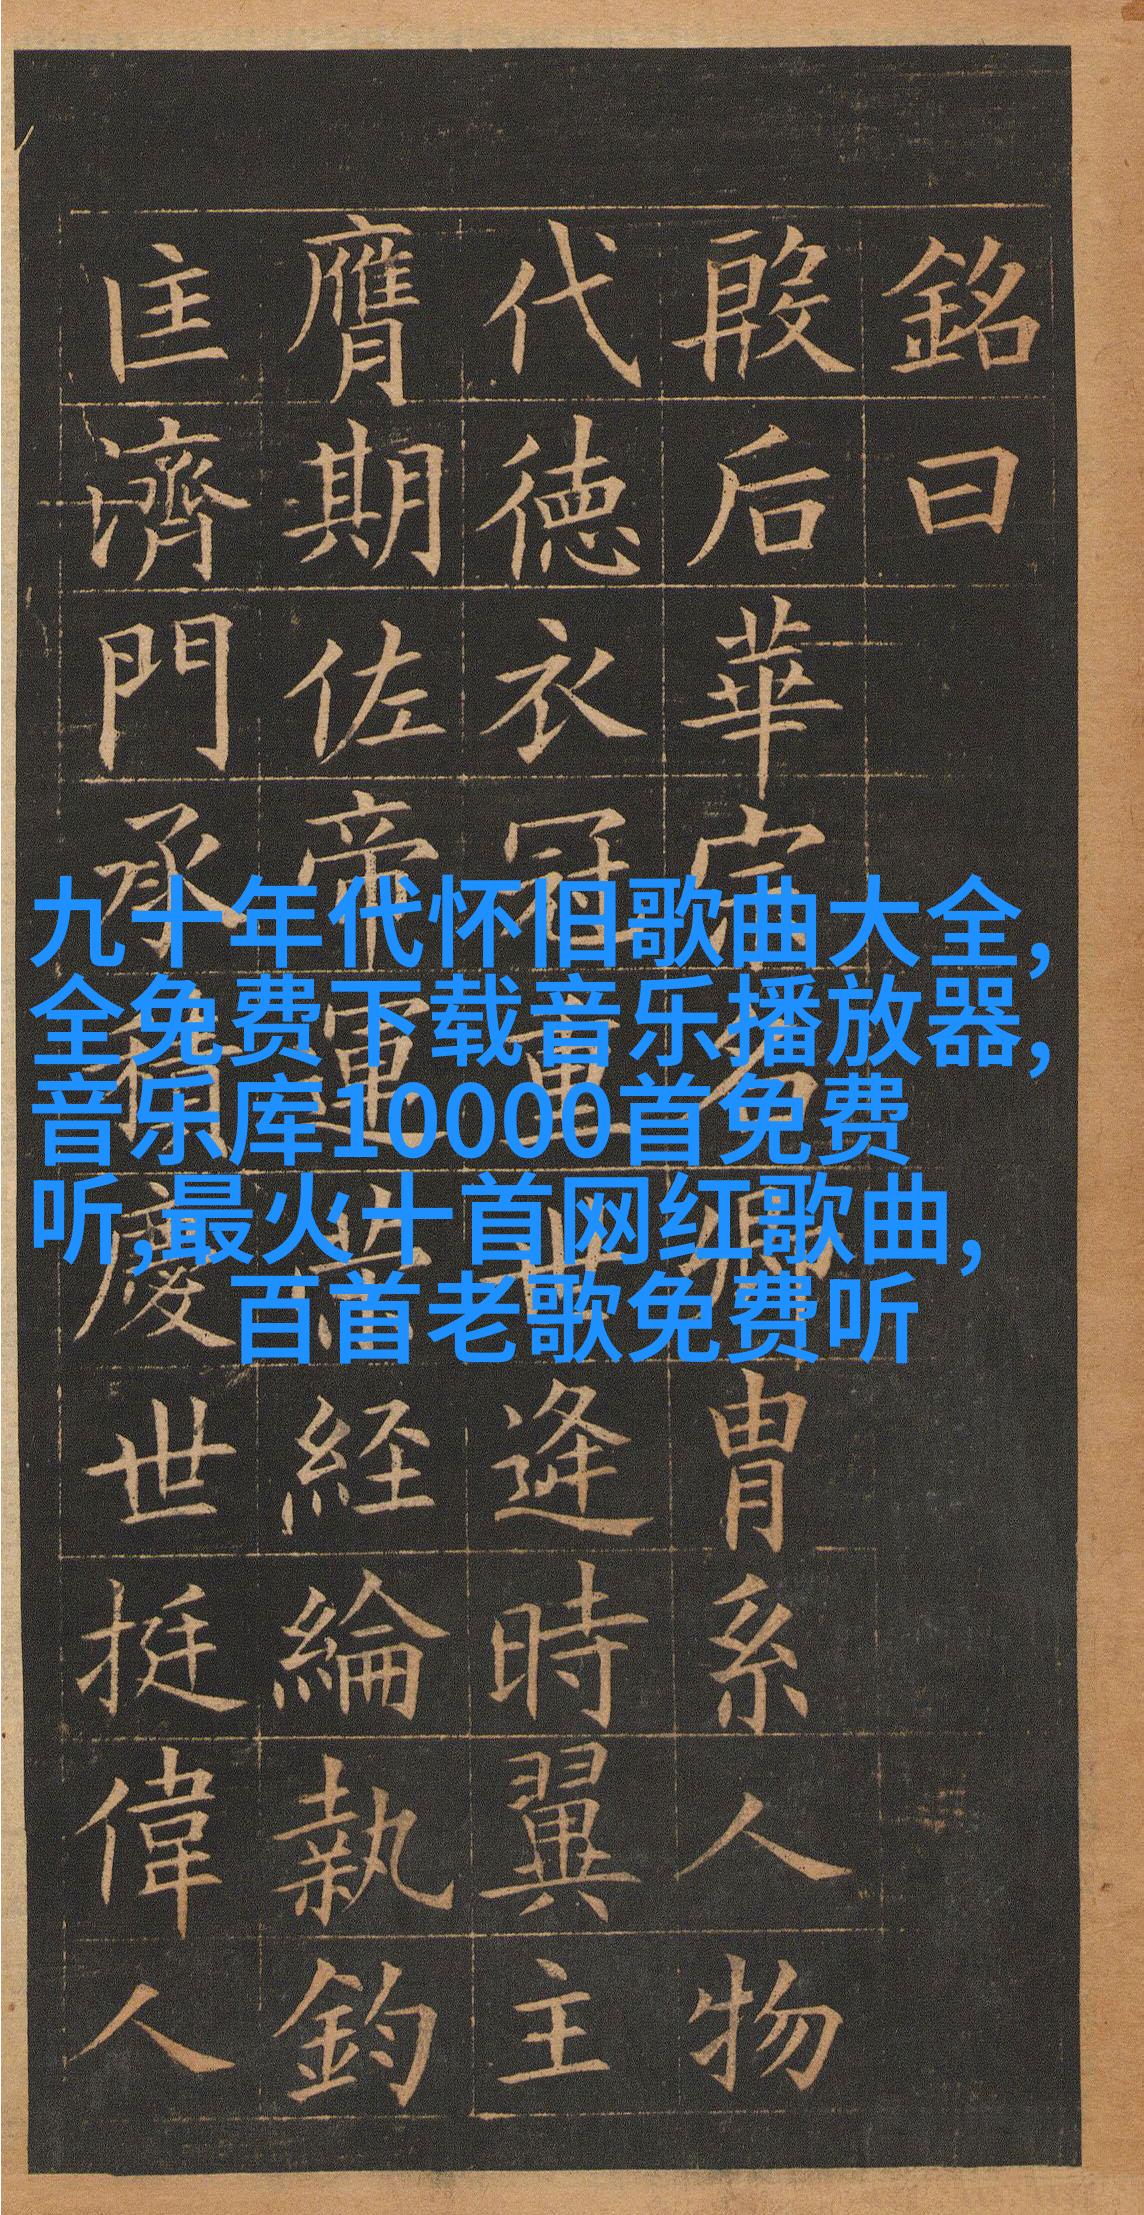 銘曰
殷后華宗名卿胄系人物
代德衣冠重世逢時翼主
膺期佐帝運策経綸執鈞
匡濟門承積慶世挺偉人
九十年代怀旧歌曲大全,
全免费下载音乐播放器,
音乐库10000首免费
听,最火十首网红歌曲,
百首老歌免费听